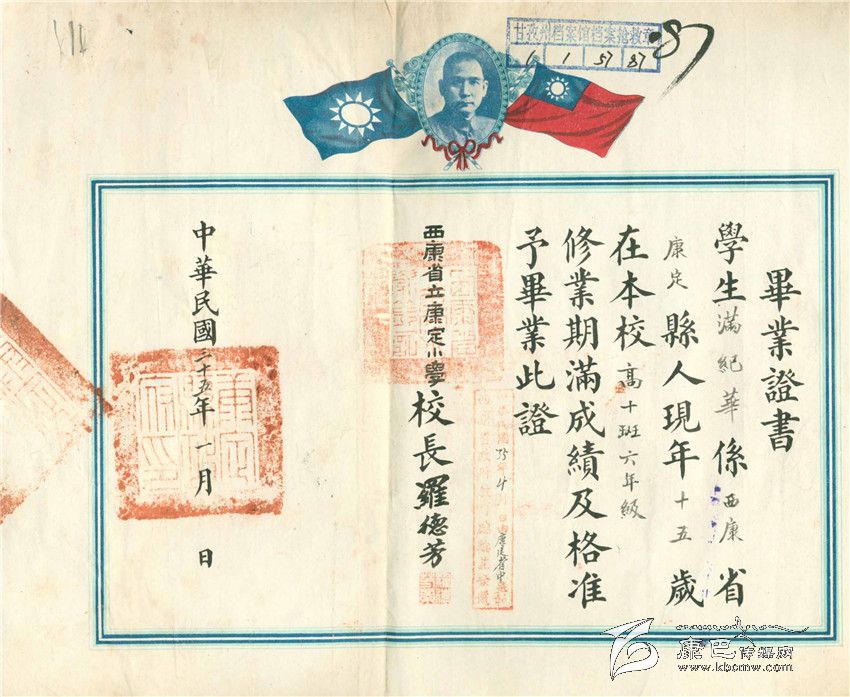 甘孜州档案馆档案抢救章
6 1 57 87
87
畢業證書
學生滿紀華係西康省
康定縣人現年十五歲
在本校高十班六年級
修業期滿成績及格准
予畢業此證
西康省立康定小學校長羅德芳
中華民國三十五年一月 日
康巴传媒网
www.kbcmw.com